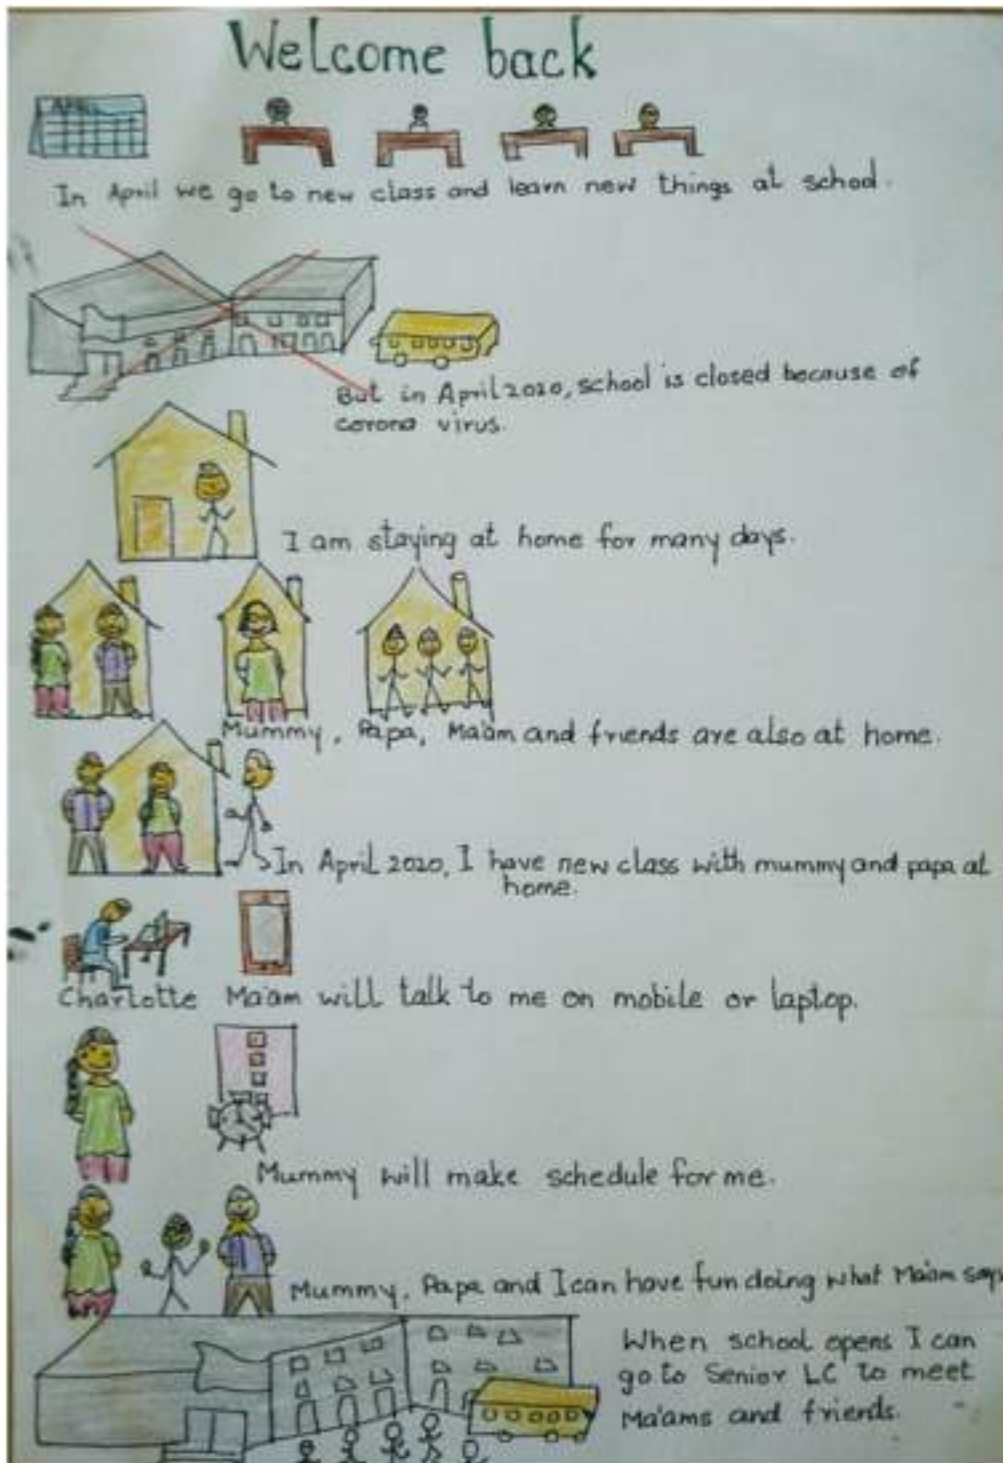 Welcome back
APRIL
In April we go to new class and learn new things at school.
But in April 2020, school is closed because of
corona virus.
I am staying at home for many days.
Mummy, Papa, Ma'am and friends are also at home.
In April 2020, I have new class with mummy and papa at
home.
Charlotte Ma'am will talk to me on mobile or laptop.
Mummy will make schedule for me.
Mummy, Papa and I can have fun doing what Ma'am says
When school opens I can
go to Senior LC to meet
Ma'ams and friends.